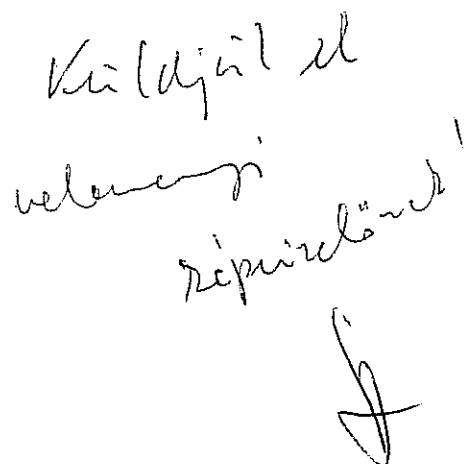 Küldjük el
valamennyi
képviselőnek!